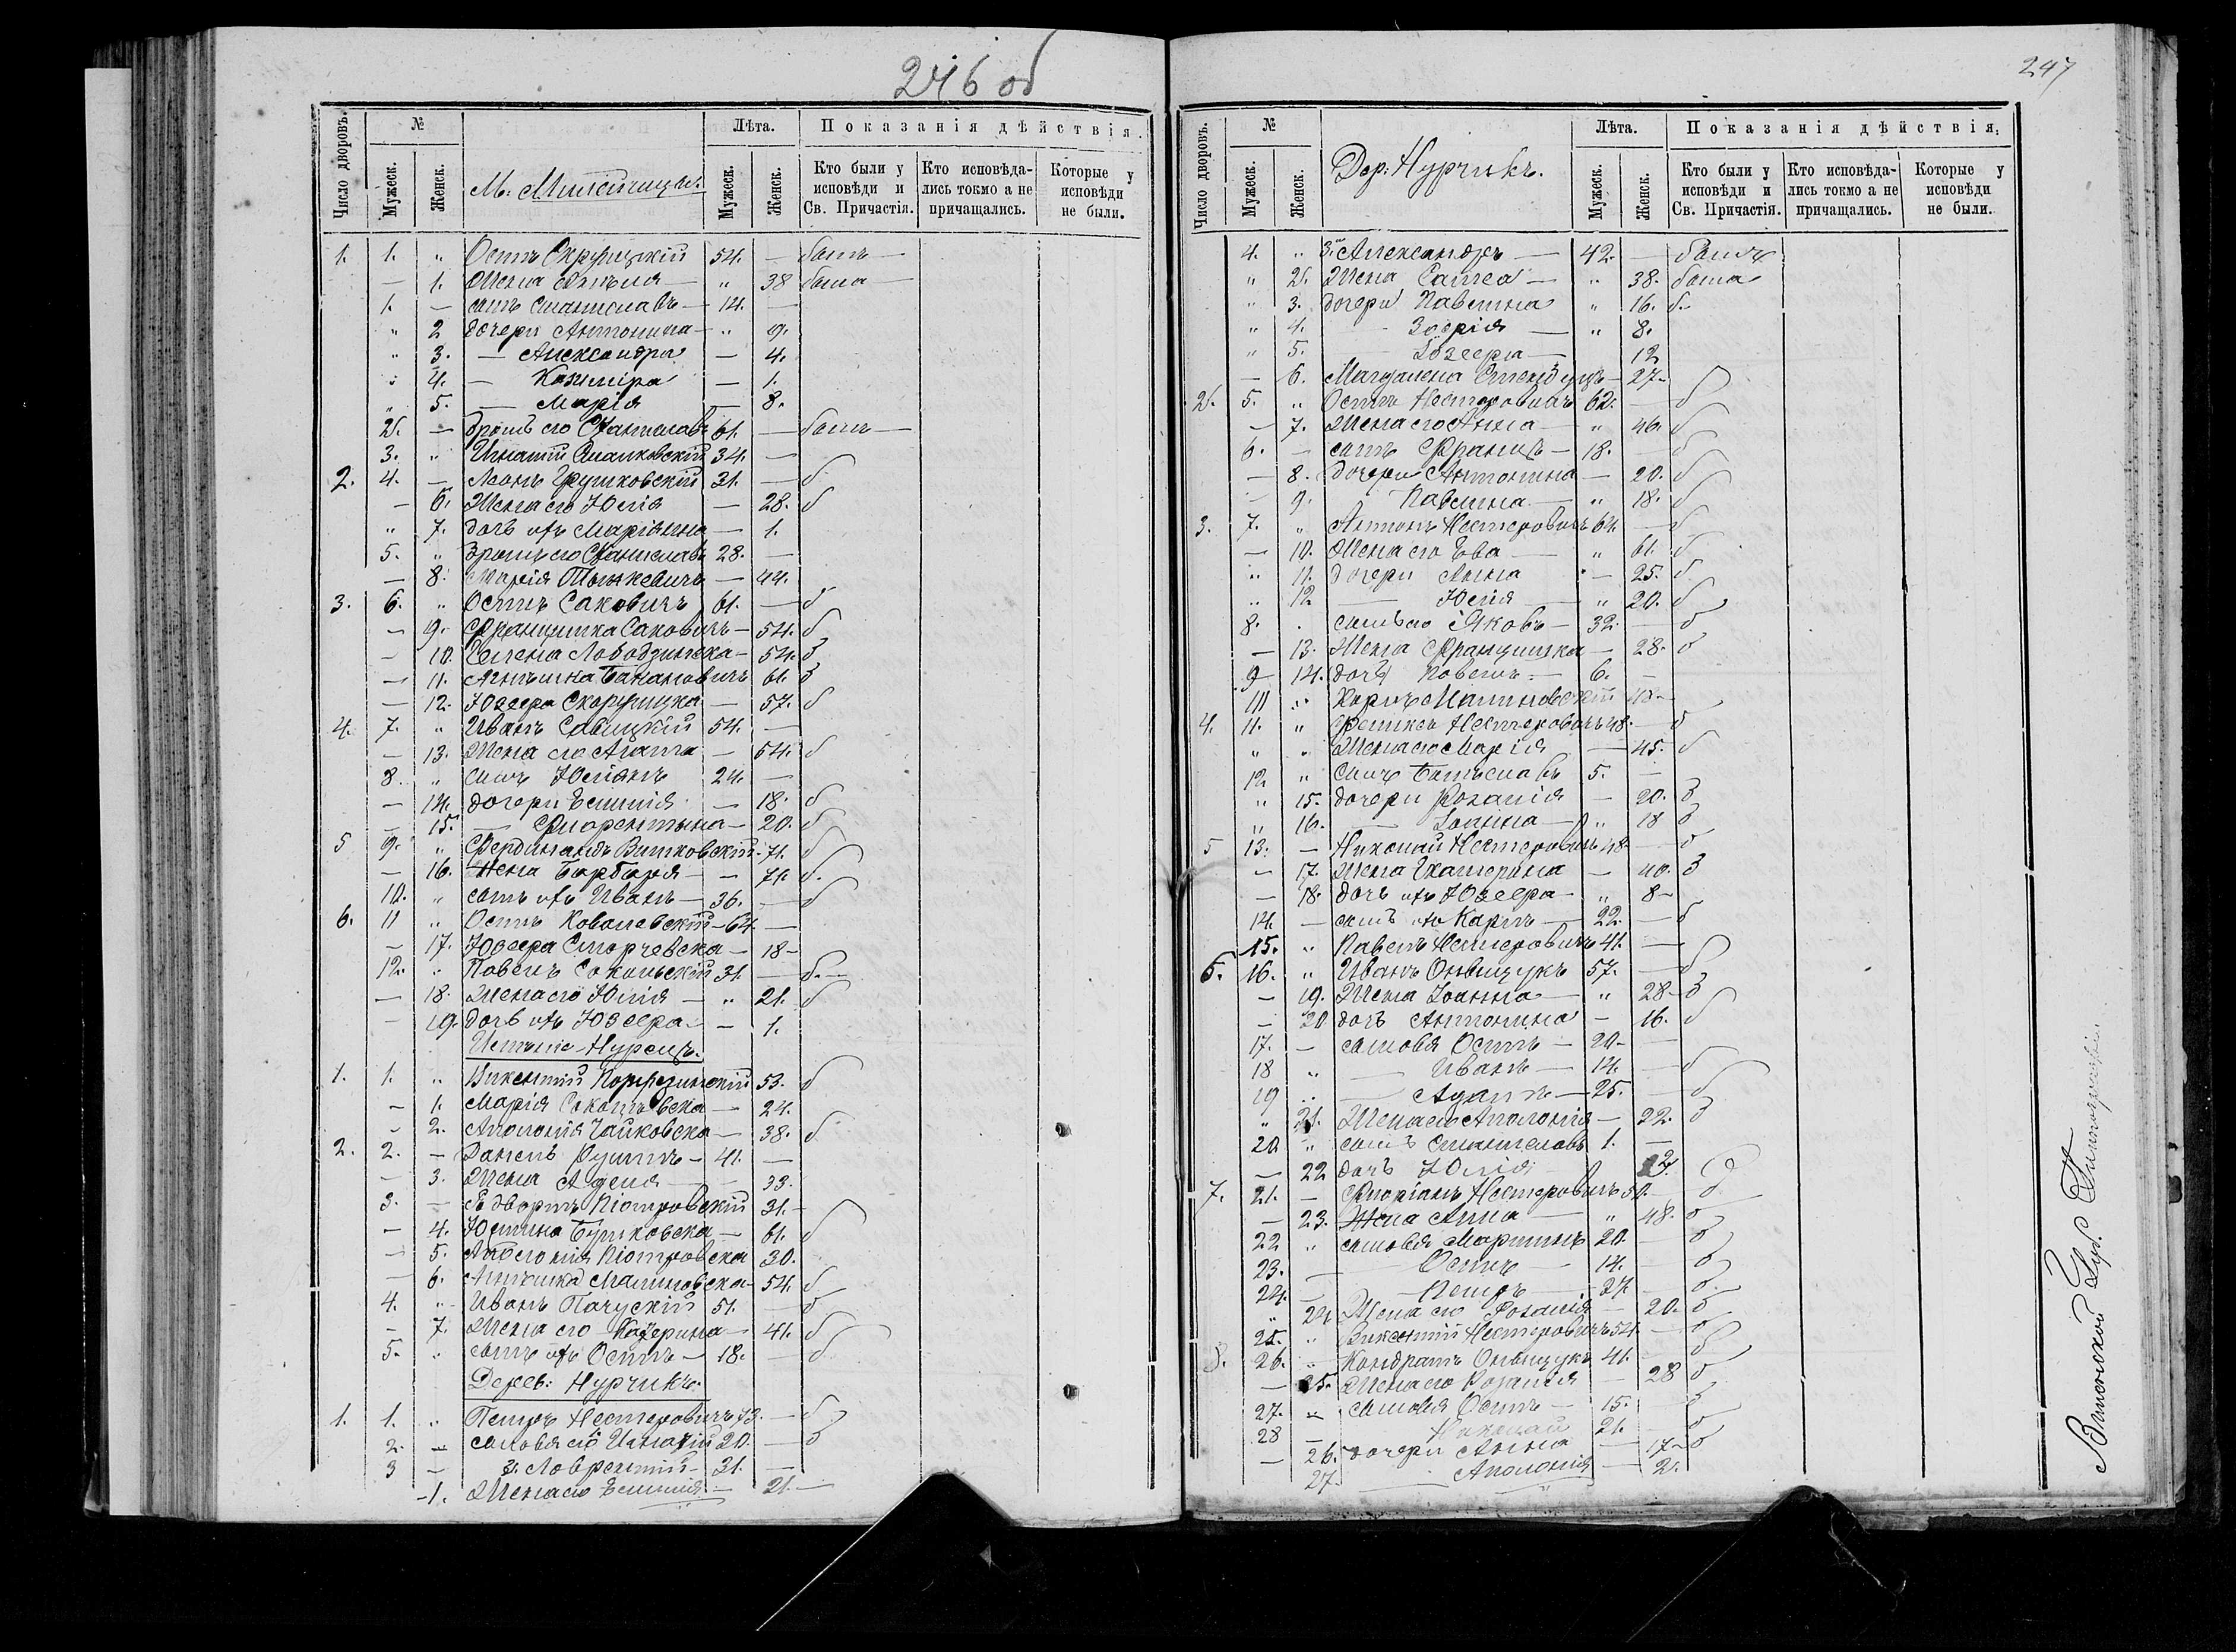 246 об
Число дворовъ. № Лѣта. Показанія дѣйствія.
Мужеск. Женск. М: Мужеск. Женск. Кто были у исповѣди и Св. Причастія. Кто исповѣда-лись токмо а не причащались. Которые у исповѣди не были.
1. 1. „ Осипъ 54. — былъ —
— 1. Жена „ 38 была —
1. — сынъ Станиславъ — 14. —
„ 2 дочери Антонина — „ 9.
„ 3. — Александра — 4.
„ 4. — Казиміра — 1.
„ 5. — Марія — 8.
2. — братъ его Станиславъ 61. — былъ —
3. „ Игнатій 34. —
2. 4. — Грушковскій 31. — б
— 6. Жена его Юлія — 28. б
„ 7. дочь ихъ Маріанна — 1.
5. „ братъ его Станиславъ 28. —
— 8. Марія Тышкевичъ — 44.
3. 6. „ Осипъ Саковичъ 61. — б
— 9. Францишка Саковичъ — 54. б
— 10. Елена Лободзинска — 54. б
— 11. 61. б
— 12. Юзефа — 57. б
4. 7. „ Иванъ Савицкій 54. —
— 13. Жена его Агата — 54. б
8. „ сынъ Юліянъ 24. —
— 14. дочери Емилія — 18. б
— 15. — Флорентына — 20. б
5 9. „ Фердинандъ Витковскій 71. б
— 16. Жена Барбара — — 71. б.
10. „ сынъ ихъ Иванъ — 36. — б
6. 11 „ Осипъ Ковалевскій — 64. —
— 17. Юзефа — 18 —
12. „ Павелъ Сокольскій 31. — б. —
— 18. Жена его Юлія — „ 21. б
— 19. дочь ихъ Юзефа — — 1.
Имѣніе Нурецъ.
1. 1. „ Викентій 53. б
— 1. Марія — 24.
— 2. Аполонія Чайковска — 38. б
2. 2. — 41. —
— 3. Жена Аделя — — 33.
3. — Піотровскій 31. —
— 4. Юстина — 61. б
— 5. Аполонія Піотровска 30.
— 6. Малиновска — 54. б
4. „ Иванъ 51. — б
— 7. Жена его Катерина — 41. б
5. „ сынъ ихъ Осипъ — 18. — б
Дерев: Нурчикъ.
1. 1. „ Петръ Нестеровичъ 73. — б
2. — сыновя его Игнатій 20. — б
3 — 2. Лаврентій — 31. —
— 1. Жена его Емилія — 21. —
247
Число дворовъ. № Лѣта. Показанія дѣйствія.
Мужеск. Женск. Дер. Нурчикъ. Мужеск. Женск. Кто были у исповѣди и Св. Причастія. Кто исповѣда-лись токмо а не причащались. Которые у исповѣди не были.
4. „ 3. Александръ — 42. — былъ
„ 2. Жена — „ 38. была
„ 3. дочери Павлина „ 16. б.
„ 4. — Зофія — „ 8.
„ 5. — Іозефа — 12
— 6. Магдалена — 27 —
2. 5. „ Осипъ Нестеровичъ 62. — б
— 7. Жена его Анна — „ 46. б
6. — сынъ Францъ — 18. — б
— 8. дочери Антонина — 20. б
— 9. Павлина — „ 18. б
3. 7. „ Антонъ Нестеровичъ 64. — б
— 10. Жена его Ева — „ 61. б
„ 11. дочери Анна — 25. б
„ 12 — Юлія — „ 20. б
8. сынъ его Яковъ — 32. — б
— 13. Жена Францишка — 28. б
9 14. дочь 6. —
10 „ Малиновскій
4. 11. „ Феликсъ Нестеровичъ 48. — б
„ „ Жена его Марія — 45. б
12 „ сынъ Болеславъ 5. —
„ 15. дочери Розалія — 20. б
„ 16. — Іоанна — „ 18 б
5 13. — Николай Нестеровичъ 48 — б
— 17. Жена Екатерина — 40. б
— 18. дочь ихъ Юзефа — „ 8 —
14. — сынъ ихъ Карлъ — 22. — б
15. „ Павелъ Нестеровичъ 41. —
6. 16. „ Иванъ Онищукъ 57. — б
— 19. Жена Іоанна — „ 28 — б
— 20 дочь Антонина — 16. б
17. — сыновя Осипъ — 20 — —
18 „ — Иванъ — 14. — б
19 „ — Адамъ — 25. — б
„ 21. Жена его Аполонія — 22. б
20 „ сынъ Станиславъ 1. —
— 22 дочь Юлія 2.
7. 21. — Флоріанъ Нестеровичъ 50. — б
— 23. Жена Анна — „ 48. б
22 „ сыновя Мартинъ 20. — б
23. — — Осипъ — 14. — б
24. — — Петръ — 27. — б
„ 24 Жена его Розалія — 20. б
25. „ Викентій Нестеровичъ 54. — б
8. 26. „ Кондратъ Онищукъ 41. — б
— 25. Жена его Розалія — 28 б
27. „ сыновя Осипъ — 15. — б
28 — Николай 21. — б
— 26. дочери Анна — 17 — б
27. — Аполонія — 2.
Виленской Губ. Типографіи